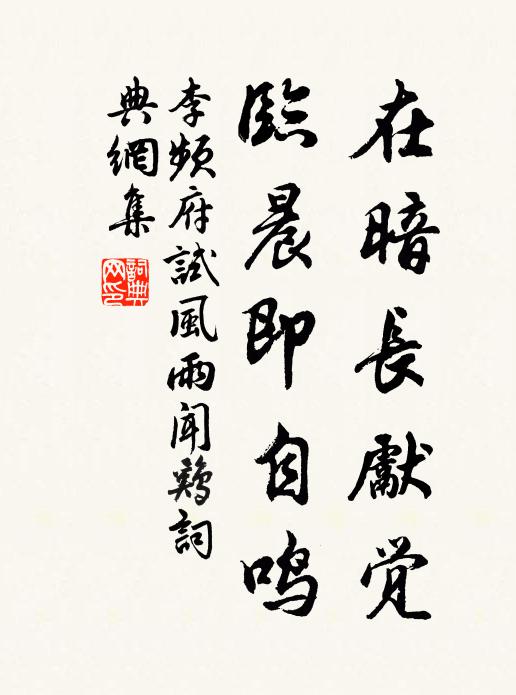 在暗長獻觉
臨晨即自鸣
李频府試風雨聞鷄詞
典網集
詞典网印